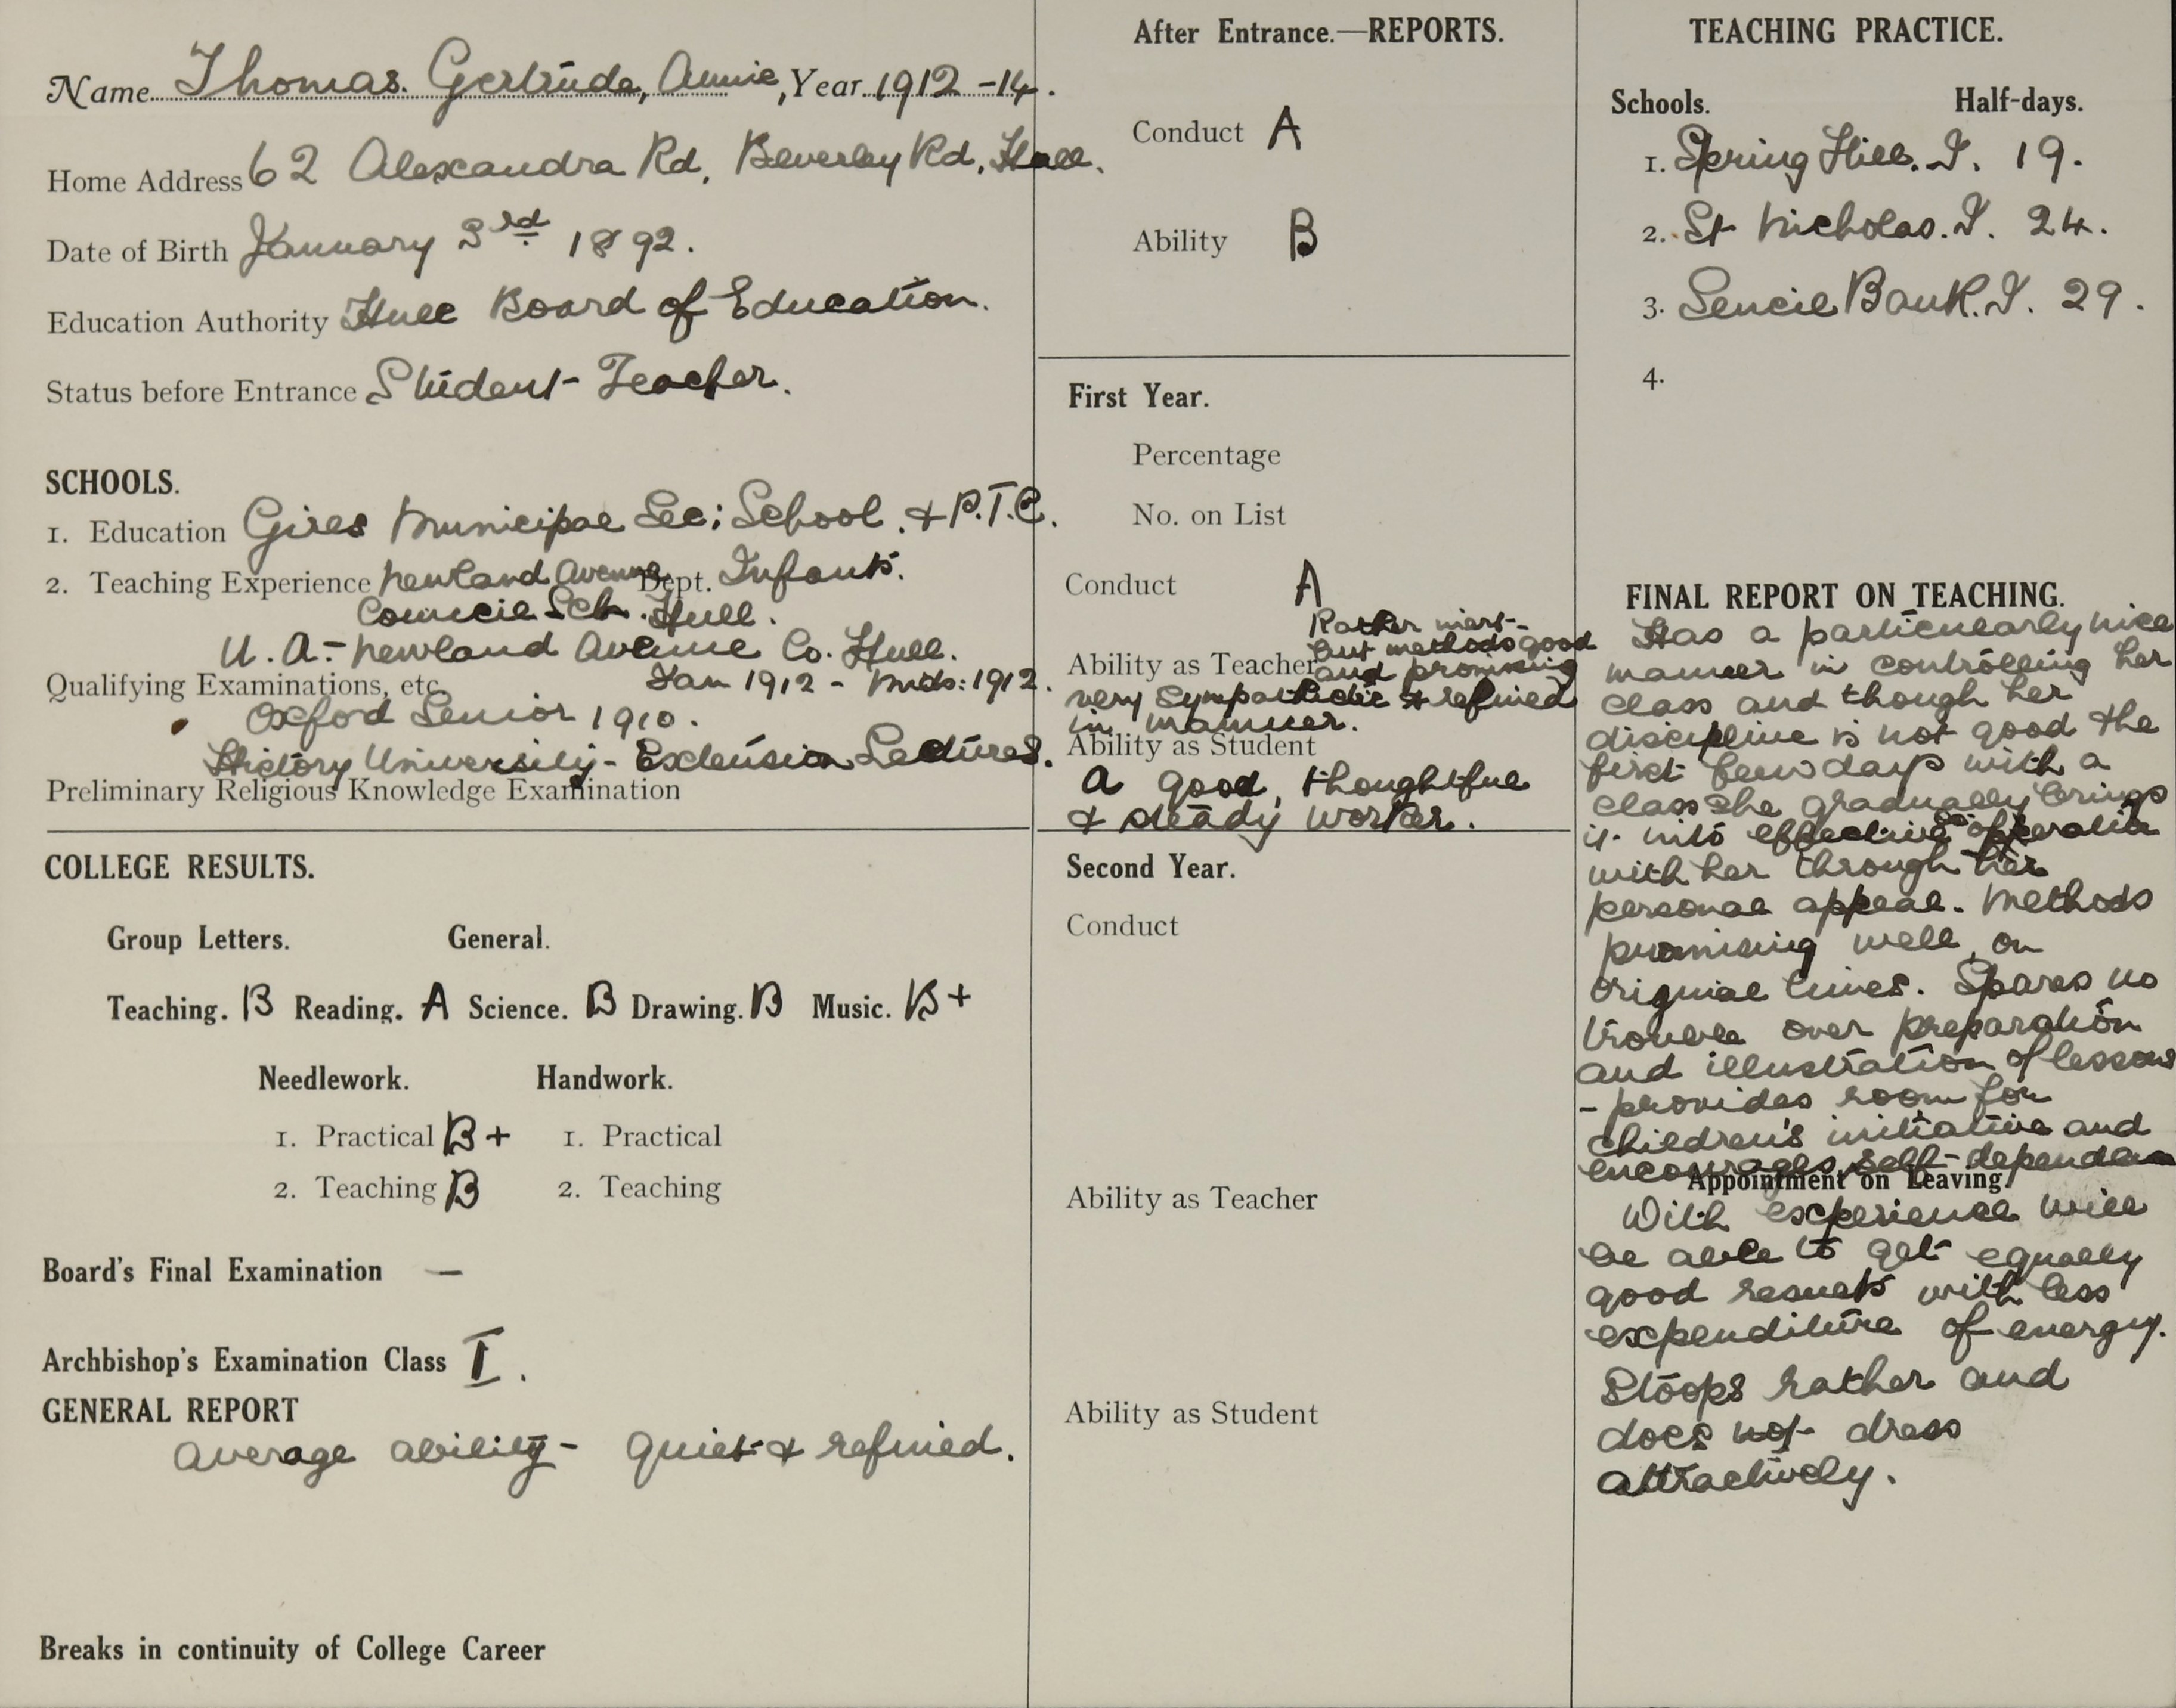 Name Thomas. Gertrude, Annie, Year 1912-14.
Home Address 62 Alexandra Rd, Beverley Rd, Hull.
Date of Birth January 3rd 1892.
Education Authority Hull Board of Education.
Status before Entrance Student-Teacher.
SCHOOLS.
1. Education Girls Municipal Sec: School. & P.T.C.
2. Teaching Experience Newland Avenue Dept. Infants.
Council Sch. Hull.
U.A:- Newland Avenue Co. Hull.
Qualifying Examinations, etc. Jan 1912 - Mids: 1912.
Oxford Senior 1910.
History University-Extension Lectures.
Preliminary Religious Knowledge Examination
COLLEGE RESULTS.
Group Letters. General.
Teaching. B Reading. A Science. B Drawing. B Music. B+
Needlework. Handwork.
1. Practical B+ 1. Practical
2. Teaching B 2. Teaching
Board's Final Examination —
Archbishop's Examination Class I.
GENERAL REPORT
Average ability - quiet & refined.
Breaks in continuity of College Career
After Entrance.—REPORTS.
Conduct A
Ability B
First Year.
Percentage
No. on List
Conduct A
Rather
but methods good
Ability as Teacher and promising
very sympathetic & refined
in manner.
Ability as Student
A good, thoughtful
& steady worker.
Second Year.
Conduct
Ability as Teacher
Ability as Student
TEACHING PRACTICE.
Schools. Half-days.
1. Spring Hill. I. 19.
2. St Nicholas. I. 24.
3. Sincil Bank. I. 29.
4.
FINAL REPORT ON TEACHING.
Has a particularly nice
manner in controlling her
class and though her
discipline is not good the
first few days with a
class she gradually brings
it into effective co-operation
with her through her
personal appeal. Methods
promising well, on
original lines. Spares no
trouble over preparation
and illustration of lessons
- provides room for
children's initiative and
encourages self-dependence
Appointment on Leaving.
With experience will
be able to get equally
good results with less
expenditure of energy.
Stoops rather and
does not dress
attractively.